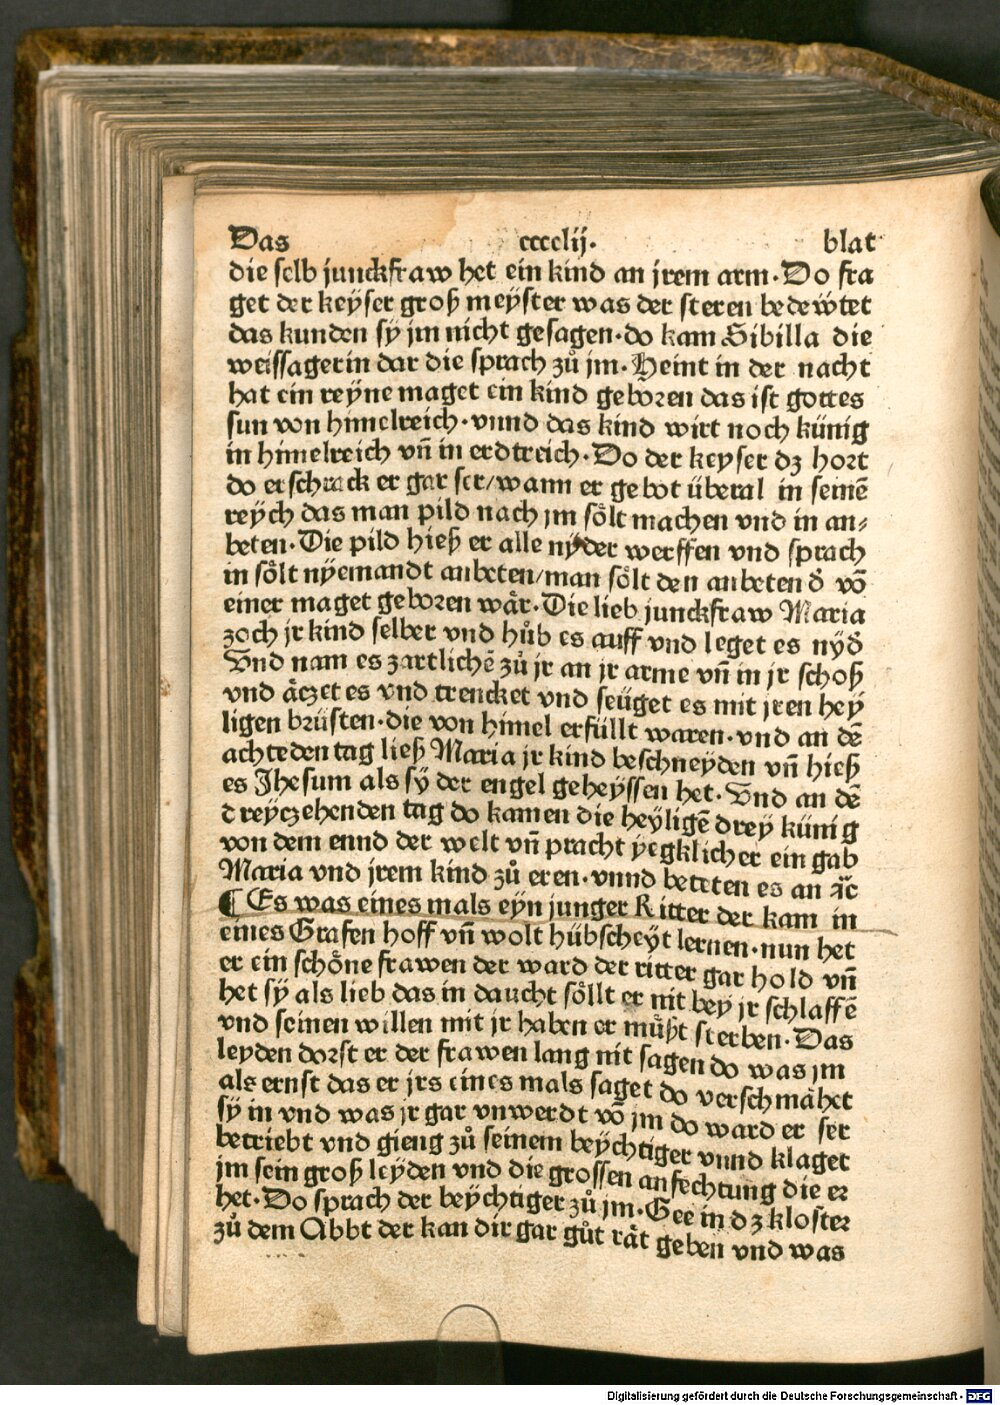 Das cccclij. blat
die selb junckfraw het ein kind an jrem arm. Do fra
get der keÿser groß meÿster was der steren bedeẅtet
das kunden sÿ jm nicht gesagen. do kam Sibilla die
weissagerin dar die sprach zuͦ jm. Heint in der nacht
hat ein reÿne maget ein kind geboren das ist gottes
sun von himelreich. vnnd das kind wirt noch künig
in himelreich vñ in erdtreich. Do der keyser dz hort
do erschrack er gar ser/wann er gebot überal in seinē
reÿch das man pild nach jm soͤlt machen vnd in an⸗
beten. Die pild hieß er alle nÿder werffen vnd sprach
in soͤlt nÿemandt anbeten/man soͤlt den anbeten d̕ vō
einer maget geboren waͤr. Die lieb junckfraw Maria
zoch jr kind selber vnd huͦb es auff vnd leget es nÿd̕
Vnd nam es zartlichē zuͦ jr an jr arme vñ in jr schoß
vnd aͤczet es vnd trencket vnd seüget es mit jren heÿ
ligen brüsten. die von himel erfüllt waren. vnd an dē
achteden tag ließ Maria jr kind beschneÿden vñ hieß
es Jhesum als sÿ der engel geheÿssen het. Vnd an dē
dreÿczehenden tag do kamen die heÿligē dreÿ künig
von dem ennd der welt vñ pracht ÿegklicher ein gab
Maria vnd jrem kind zuͦ eren. vnnd beteten es an ꝛc̈
¶ Es was eines mals eÿn junger Ritter der kam in
eines Grafen hoff vñ wolt hübscheÿt lernen. nun het
er ein schoͤne frawen der ward der ritter gar hold vñ
het sÿ als lieb das in daucht soͤllt er nit bey jr schlaffē
vnd seinen willen mit jr haben er muͤßt sterben. Das
leyden dorst er der frawen lang nit sagen do was jm
als ernst das er jrs eines mals saget do verschmaͤhet
sÿ in vnd was jr gar vnwerdt vō jm do ward er ser
betriebt vnd gieng zuͦ seinem beÿchtiger vnnd klaget
jm sein groß leÿden vnd die grossen anfechtung die er
het. Do sprach der beÿchtiger zuͦ jm. Gee in dz kloster
zuͦ dem Abbt der kan dir gar guͦt raͤt geben vnd was
Digitalisierung gefördert durch die Deutsche Forschungsgemeinschaft - DFG